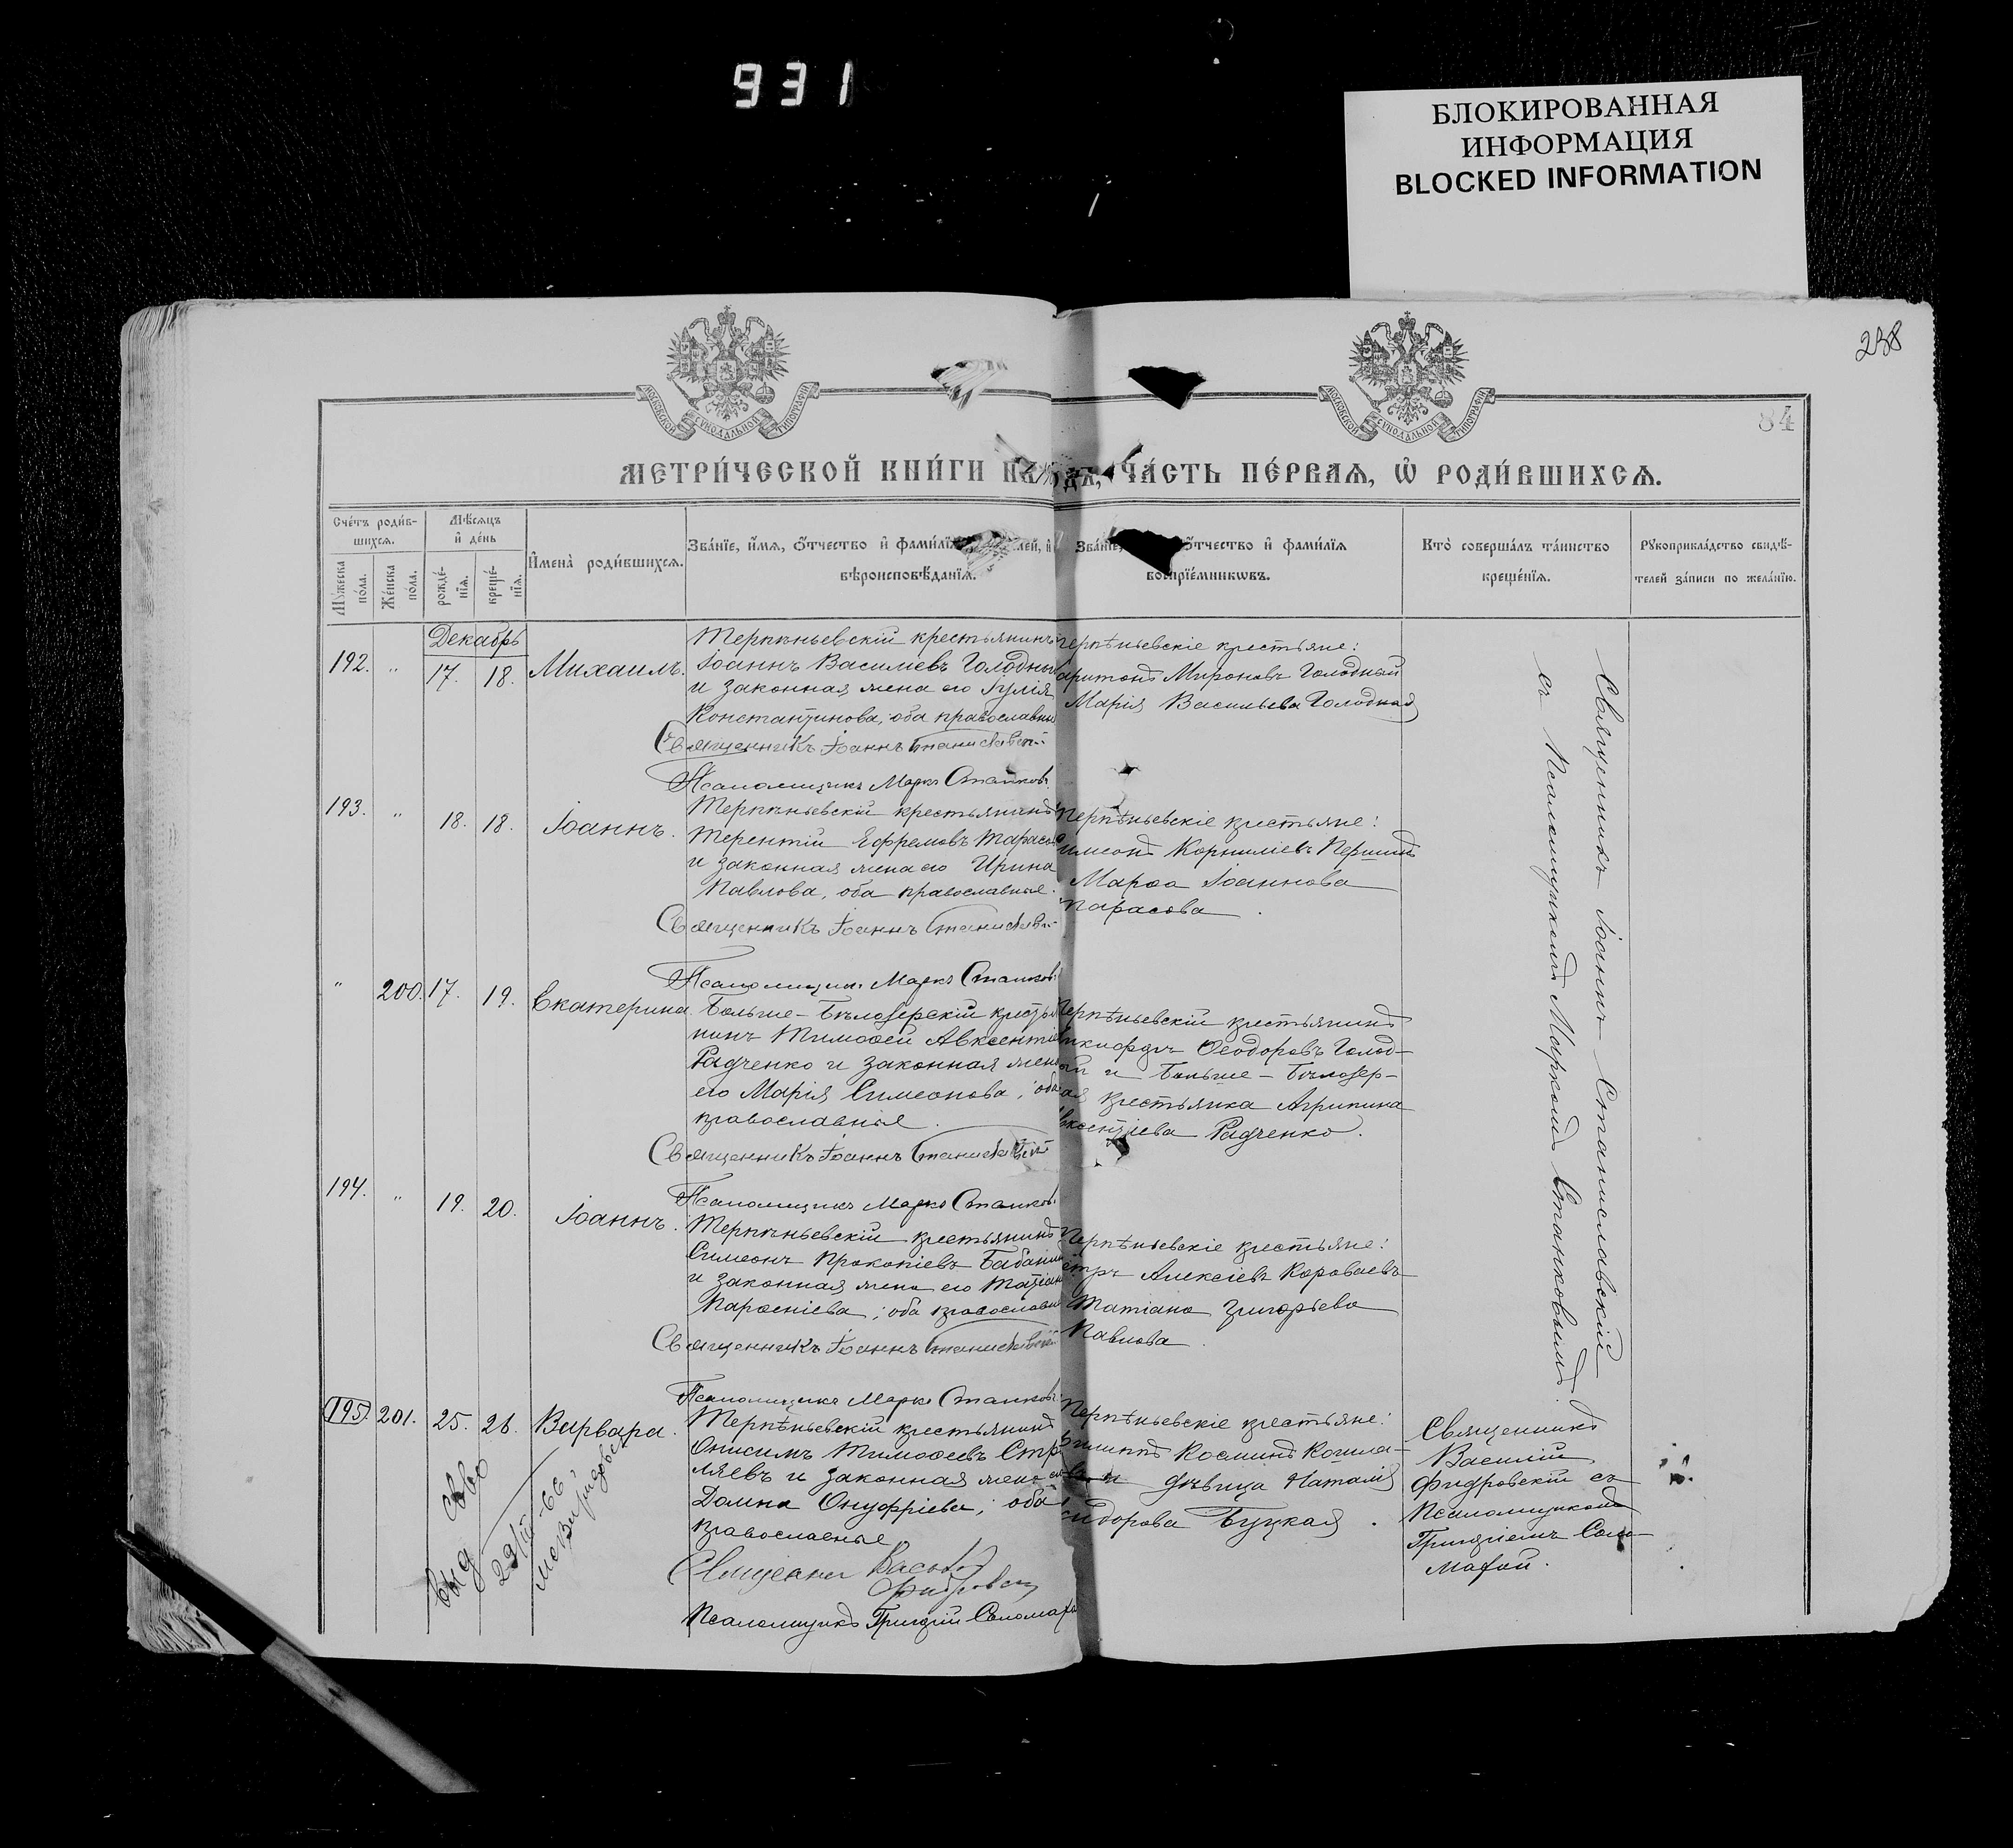 931
БЛОКИРОВАННАЯ
ИНФОРМАЦИЯ
BLOCKED INFORMATION
238
84
МОСКОВСКОЙ СѴНОДАЛЬНОЙ ТИПОГРАФІИ
МОСКОВСКОЙ СѴНОДАЛЬНОЙ ТИПОГРАФІИ
МЕТРИ́ЧЕСКОЙ КНИ́ГИ НА ЧА́СТЬ ПЕ́РВАѦ, Ѡ҆ РОДИ́ВШИХСѦ.
Сче́тъ роди́в-
шихсѧ.
Мꙋ́жеска
по́ла.
Же́нска
по́ла.
Мѣ́сѧцъ
и҆ де́нь
рожде́-
нїѧ.
креще́-
нїѧ.
И҆мена̀ роди́вшихсѧ.
Зва́нїе, и҆́мѧ, ѻ҆́тчество и҆ фами́лїѧ
вѣроисповѣ́данїѧ.
Зва́нїе, ѻ҆́тчество и҆ фами́лїѧ
воспрїе́мникѡвъ.
Кто̀ соверша́лъ та́инство
креще́нїѧ.
Рꙋкоприкла́дство свидѣ́-
телей за́писи по жела́нїю.
Декабрь
192. " 17. 18. Михаилъ.
Терпѣньевскій крестьянинъ
Іоаннъ Васильевъ Голодный
и законная жена его Іулія
Константинова, оба православны
Священникъ Іоаннъ Станиславскій
Псаломщикъ Маркъ Станковъ
Терпѣньевскіе крестьяне:
Харитонъ Мироновъ Голодный
Марія Васильева Голодная
193. " 18. 18. Іоаннъ.
Терпѣньевскій крестьянинъ
Терентій Ефремовъ Тарасов
и законная жена его Ирина
Павлова, оба православные.
Священникъ Іоаннъ Станиславскій
Псаломщикъ Маркъ Станковъ
Терпѣньевскіе крестьяне:
Симеонъ Корниліевъ
Марѳа Іоаннова
Тарасова.
" 200. 17. 19. Екатерина
Больше-Бѣлозерскій крестья
нинъ Тимоѳей Авксентіев
Радченко и законная жена
его Марія Симеонова, оба
православные.
Священникъ Іоаннъ Станиславскій
Псаломщикъ Маркъ Станковъ
Терпѣньевскій крестьянинъ
Никифоръ Ѳеодоровъ Голод-
ный и Больше-Бѣлозер-
ская крестьянка Агрипина
Авксентіева Радченко.
194. " 19. 20. Іоаннъ.
Терпѣньевскій крестьянинъ
Симеонъ Прокопіевъ Бабанин
и законная жена его Татіан
Парѳеніева, оба православны
Священникъ Іоаннъ Станиславскій
Псаломщикъ Маркъ Станковъ
Терпѣньевскіе крестьяне:
Петръ Алексіевъ Короваевъ
Татіана Григорьева
Павлова.
Священникъ Іоаннъ Станиславскій
съ Псаломщикомъ Маркомъ Станковымъ.
195. 201. 25. 26. Варвара.
Терпѣньевскій крестьянинъ
Онисимъ Тимоѳеевъ Стр
ляевъ и законная жена его
Домна Онуфріева, оба
православные
Священникъ Василій
Фидровскій
Псаломщикъ Григорій Соломаха
Терпѣньевскіе крестьяне:
Филиппъ Косминъ
и дѣвица Наталія
Сидорова Буцкая.
Священникъ
Василій
Фидровскій съ
Псаломщикомъ
Григоріемъ Соло-
махой.
выд
23/III-66